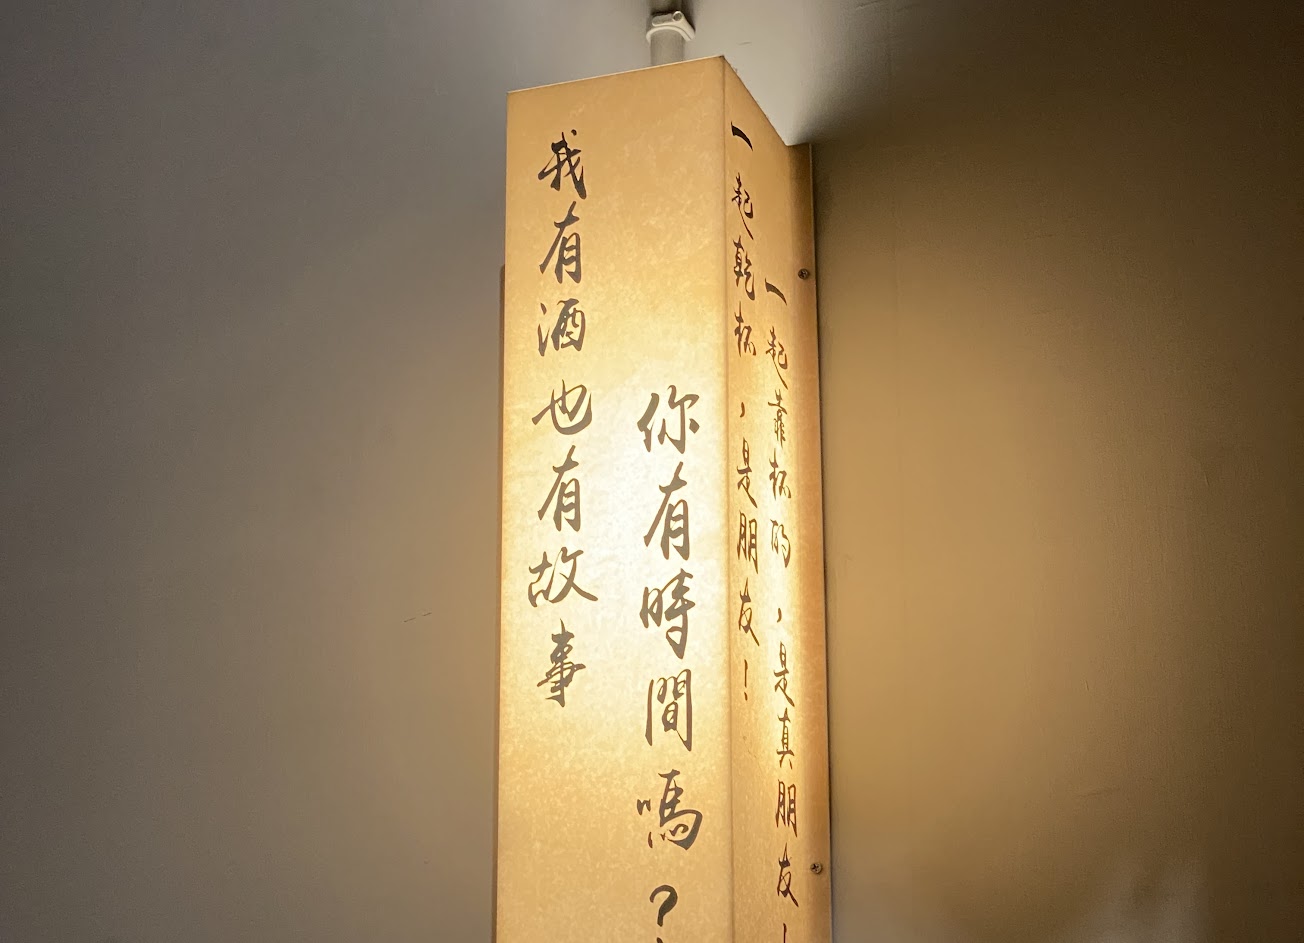 我有酒也有故事
你有時間嗎？
一起乾杯，是朋友！
一起靠杯的，是真朋友！